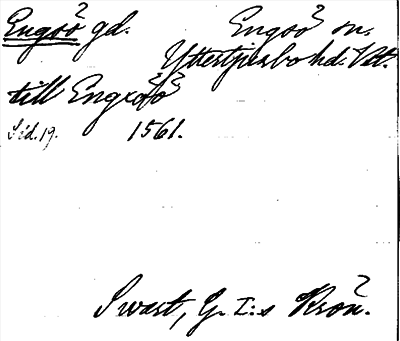 Engsö gd. Engsö sn.
Yttertjurbo hd. Vstl.
till Engxöö
Sid. 19. 1561.
Swart, G. I:s Krön.